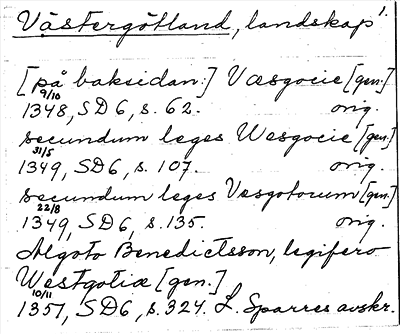 Västergötland, landskap 1.
[på baksidan:] Væsgocie [gen.]
9/10
1348, SD 6, s. 62. orig.
secundum leges Wesgocie [gen.]
31/5
1349, SD 6, s. 107. orig.
secundum leges Vesgotorum [gen.]
22/8
1349, SD 6, s. 135. orig.
Algoto Benedictsson, legifero
Westgotiæ [gen.]
10/11
1351, SD 6, s. 324. L. Sparres avskr.